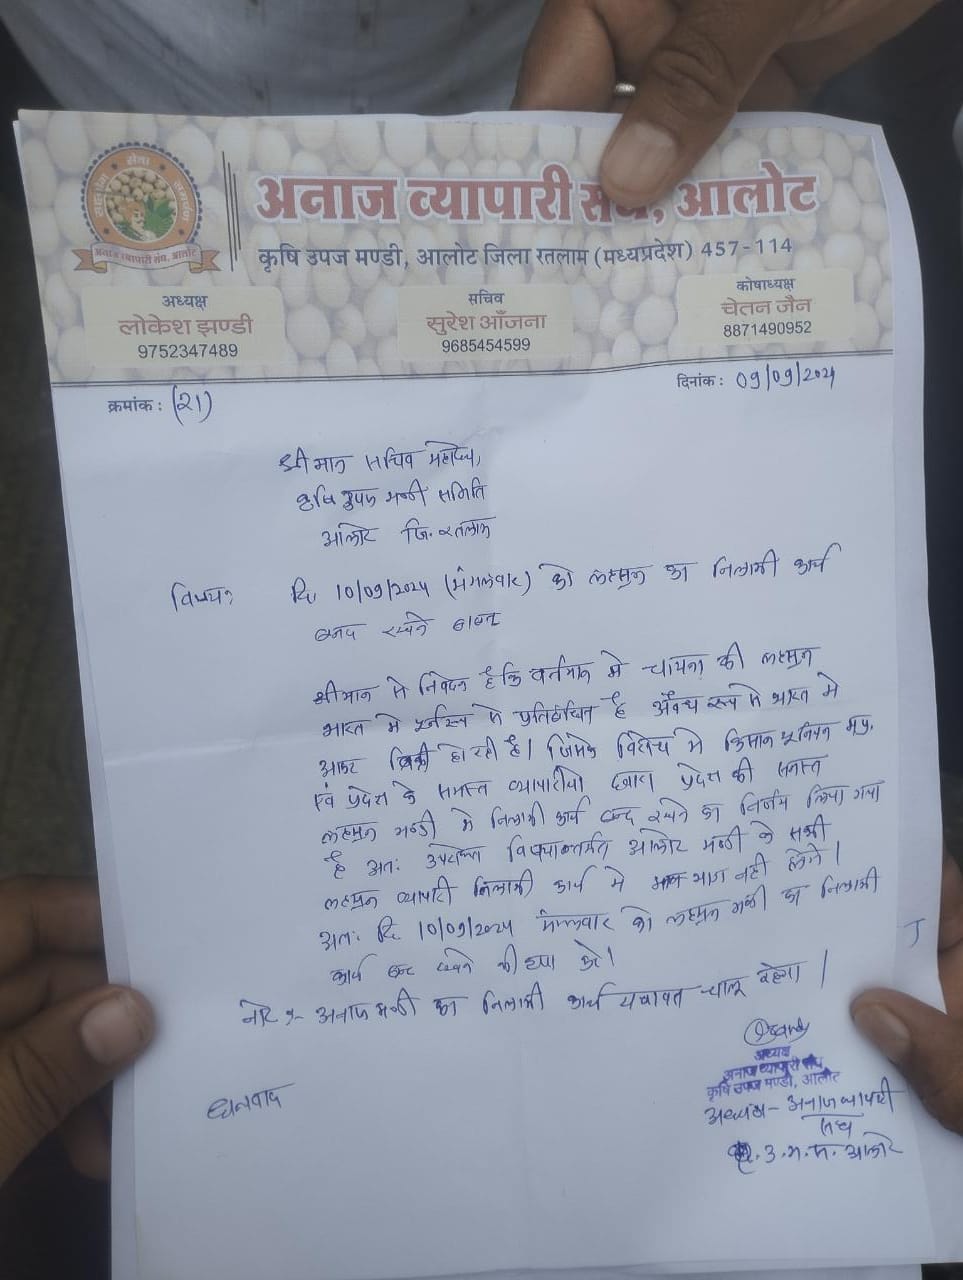 सेवा
अनाज व्यापारी संघ, आलोट
अनाज व्यापारी संघ, आलोट
कृषि उपज मण्डी, आलोट जिला रतलाम (मध्यप्रदेश) 457-114
अध्यक्ष
लोकेश झण्डी
9752347489
सचिव
सुरेश आँजना
9685454599
कोषाध्यक्ष
चेतन जैन
8871490952
क्रमांक : (21)
दिनांक : 09/09/2024
श्रीमान सचिव महोदय,
कृषि उपज मण्डी समिति
आलोट जि. रतलाम
विषय:- दि. 10/09/2024 (मंगलवार) को लहसुन का निलामी कार्य
बन्द रखने बाबत
श्रीमान से निवेदन है कि वर्तमान मे चायना की लहसुन
भारत मे पूर्णरूप से प्रतिबंधित है अवैध रूप से भारत मे
आकर बिक्री हो रही है। जिसके विरोध मे किसान यूनियन म.प्र.
एवं प्रदेश के समस्त व्यापारीयो द्वारा प्रदेश की समस्त
लहसुन मण्डी मे निलामी कार्य बन्द रखने का निर्णय लिया गया
है अतः उपरोक्त विषयान्तर्गत आलोट मण्डी के सभी
लहसुन व्यापारी निलामी कार्य मे भाग नही लेंगे।
अतः दि. 10/09/2024 मंगलवार को लहसुन मण्डी का निलामी
कार्य बन्द रखने की कृपा करे।
नोट :- अनाज मण्डी का निलामी कार्य यथावत चालू रहेगा।
धन्यवाद
अध्यक्ष
अनाज व्यापारी संघ
कृषि उपज मण्डी, आलोट
अध्यक्ष - अनाज व्यापारी
संघ
कृ. उ. म. स. आलोट